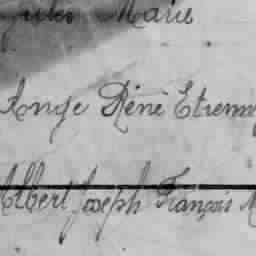 Jules Marie
Ange René Etienne
Albert Joseph François M